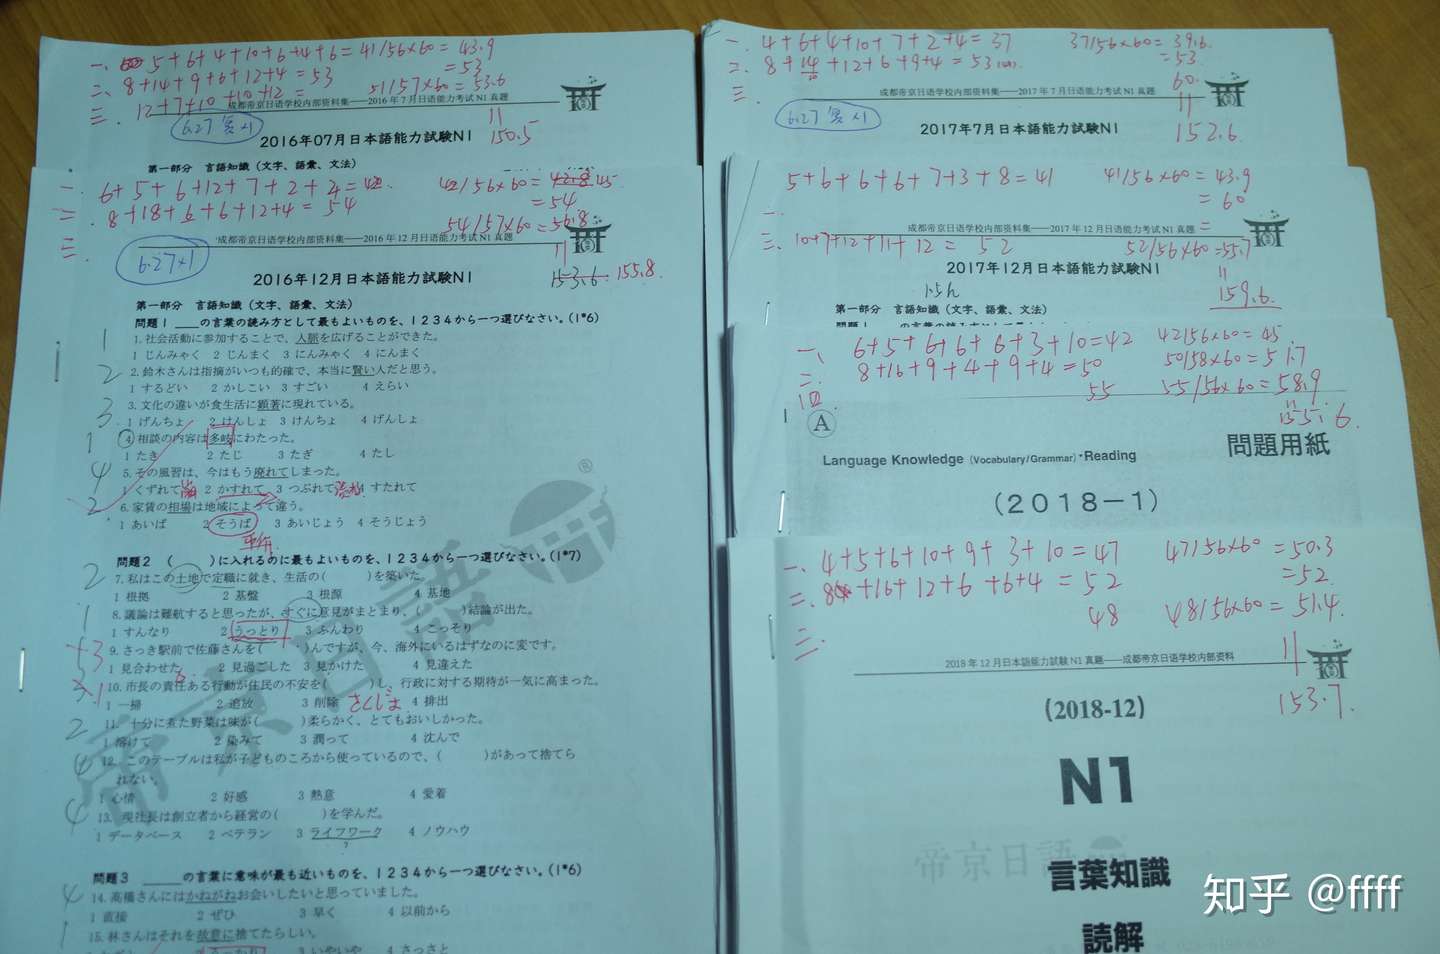 一、5+6+4+10+6+4+6=41/56×60=43.9
二、8+14+9+6+12+4=53
=53
三、12+7+10+10+12=
51/57×60=53.6
成都帝京日语学校内部资料集——2016年7月日语能力考试N1真题
6.27
11
150.5
2016年07月日本語能力試験N1
第一部分 言語知識(文字、語彙、文法)
一、6+5+6+12+7+2+2=42.
42/56×60=42.8 45
二、8+18+6+6+12+4=54
=54
三、
54/57×60=56.8
成都帝京日语学校内部资料集——2016年12月日语能力考试N1真题
11
6.27
153.6 155.8
2016年12月日本語能力試験N1
第一部分 言語知識(文字、語彙、文法)
問題1 ____の言葉の読み方として最もよいものを、1234から一つ選びなさい。(1*6)
1
1.社会活動に参加することで、人脈を広げることができた。
1 じんみゃく 2 じんまく 3 にんみゃく 4 にんまく
2
2.鈴木さんは指摘がいつも的確で、本当に賢い人だと思う。
1 するどい 2 かしこい 3 すごい 4 えらい
3
3.文化の違いが食生活に顕著に現れている。
1 げんちょ 2 けんしょ 3 けんちょ 4 げんしょ
1
4.相談の内容は多岐にわたった。
1 たき 2 たじ 3 たぎ 4 たし
4
5.その風習は、今はもう廃れてしまった。
1 くずれて 2 かすれて 3 つぶれて 4 すたれて
2
6.家賃の相場は地域によって違う。
1 あいば 2 そうば 3 あいじょう 4 そうじょう
問題2 ( )に入れるのに最もよいものを、1234から一つ選びなさい。(1*7)
2
7.私はこの土地で定職に就き、生活の( )を築いた。
1 根拠 2 基盤 3 根源 4 基地
1
8.議論は難航すると思ったが、すぐに意見がまとまり、( )結論が出た。
1 すんなり 2 うっとり 3 ふんわり 4 こっそり
3
9.さっき駅前で佐藤さんを( )んですが、今、海外にいるはずなのに変です。
1 見合わせた 2 見過ごした 3 見かけた 4 見違えた
10.市長の責任ある行動が住民の不安を( )し、行政に対する期待が一気に高まった。
1 一掃 2 追放 3 削除 さくじょ 4 排出
2
11. 十分に煮た野菜は味が( )柔らかく、とてもおいしかった。
1 溶けて 2 染みて 3 潤って 4 沈んで
4
12. このテーブルは私が子どものころから使っているので、( )があって捨てら
れない。
1 心情 2 好感 3 熱意 4 愛着
4
13. 現社長は創立者から経営の( )を学んだ。
1 データベース 2 ベテラン 3 ライフワーク 4 ノウハウ
問題3 ____の言葉に意味が最も近いものを、1234から一つ選びなさい。(1*6)
4
14.高橋さんにはかねがねお会いしたいと思っていました。
1 直接 2 ぜひ 3 早く 4 以前から
1
15.林さんはそれを故意に捨てたらしい。
3 いやいや 4 さっさと
帝京日語
一、4+6+4+10+7+2+4=37
37/56×60=39.6
二、8+14+12+6+9+4=53
=53
三、
60
成都帝京日语学校内部资料集——2017年7月日语能力考试N1真题
6.27
11
2017年7月日本語能力試験N1
152.6
5+6+6+6+7+3+8=41
41/56×60=43.9
=60
=
成都帝京日语学校内部资料集——2017年12月日语能力考试N1真题
三、10+7+12+11+12=52
52/56×60=55.7
11
2017年12月日本語能力試験N1
1.5h
159.6
第一部分 言語知識(文字、語彙、文法)
一、6+5+6+6+6+3+10=42
42/56×60=45
二、8+16+9+4+9+4=50
50/58×60=51.7
55
55/56×60=58.9
155.6
1
A
問題用紙
Language Knowledge (Vocabulary/Grammar)・Reading
(2018-1)
一、4+5+6+10+9+3+10=47
47/56×60=50.3
二、8+16+12+6+6+4=52
=52
三、
48
48/56×60=51.4
11
2018年12月日本語能力试验N1真题——成都帝京日语学校内部资料
153.7
(2018-12)
N1
帝京日語
言葉知識
読解
知乎 @ffff